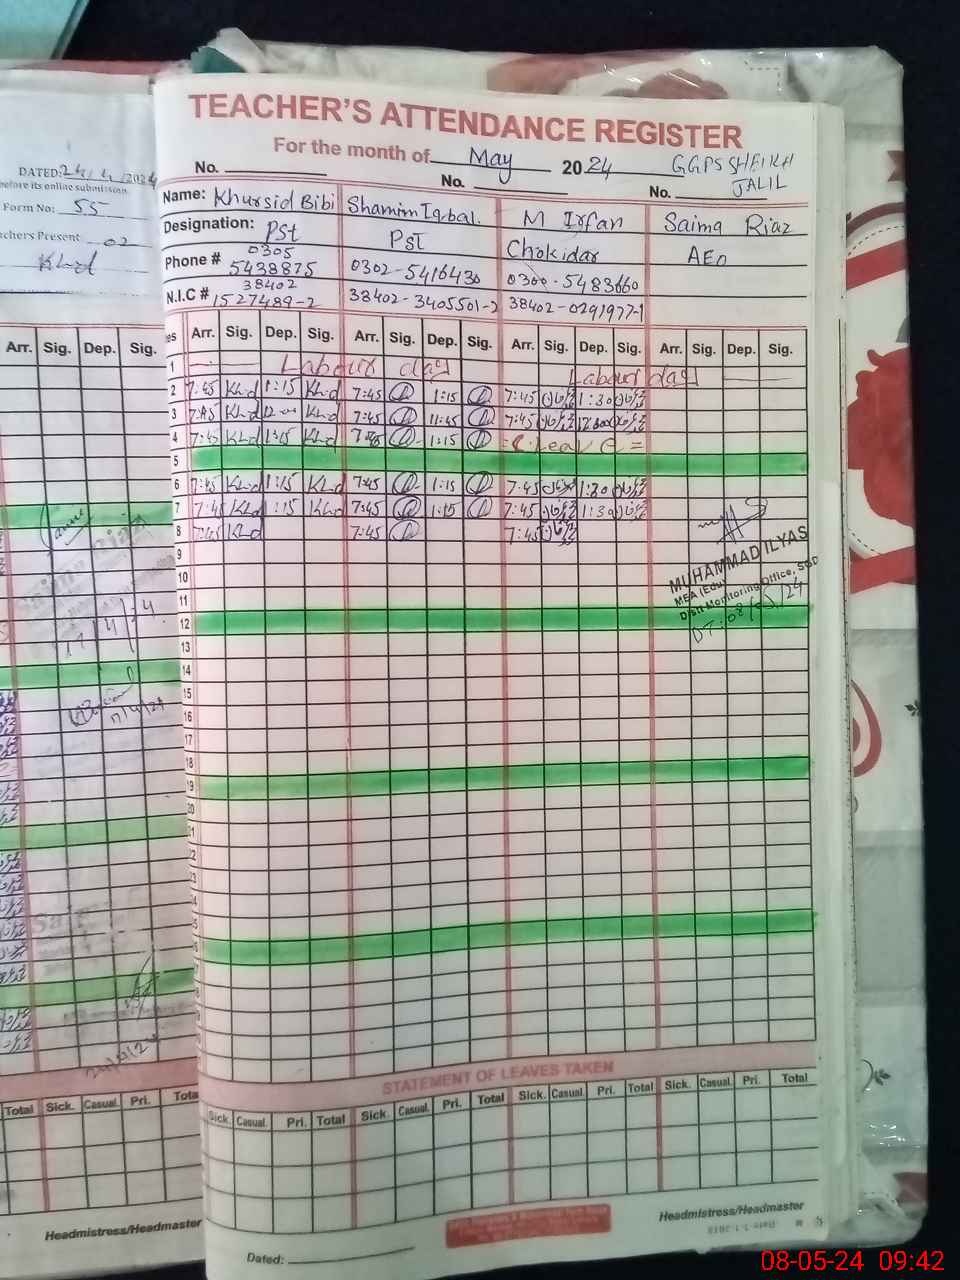 DATED:
before its online submission.
Form No: 55
Teachers Present 02
TEACHER'S ATTENDANCE REGISTER
For the month of May 2024 GGPS SHEIKH JALIL
No. No. No.
Name: Khursid Bibi Shamim Iqbal. M Irfan Saima Riaz
Designation: PST PST Chokidar AEO
Phone # 0305 5438875 0302-5416430 0300-5483660
N.I.C # 38402 1527489-2 38402-3405501-2 38402-0291977-1
Arr. Sig. Dep. Sig. Arr. Sig. Dep. Sig. Arr. Sig. Dep. Sig. Arr. Sig. Dep. Sig. Arr. Sig. Dep. Sig.
1 Labour day Labour day
2 7:45 Khd 1:15 Khd 7:45 1:15 7:45 1:30
3 7:45 Khd 12:00 Khd 7:45 11:45 7:45
4 7:45 Khd 1:15 Khd 7:45 1:15 C. Leave
5
6 7:45 Khd 1:15 Khd 7:45 1:15 7:45 1:30
7 7:45 Khd 1:15 Khd 7:45 1:15 7:45 1:30
8 7:45 Khd 7:45 7:45
9
10
11
12
13
14
15
16
17
18
19
20
MUHAMMAD ILYAS
MEA (Edu)
Distt Monitoring Office, SGD
DT: 08/05/24
17/4/24
STATEMENT OF LEAVES TAKEN
Total Sick. Casual. Pri. Total Sick. Casual. Pri. Total Sick. Casual. Pri. Total Sick. Casual. Pri. Total Sick. Casual. Pri. Total
Headmistress/Headmaster
Headmistress/Headmaster
Dated:
08-05-24 09:42